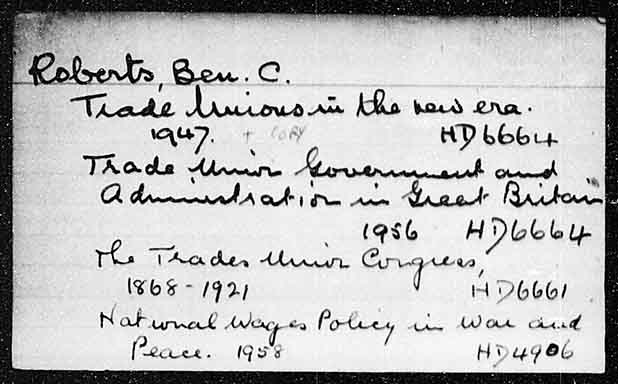 Roberts, Ben. C.
Trade Unions in the new era.
1947. + COPY HD6664
Trade Union Government and
Administration in Great Britain
1956 HD6664
The Trades Union Congress,
1868-1921 HD6661
National Wages Policy in War and
Peace. 1958 HD4906